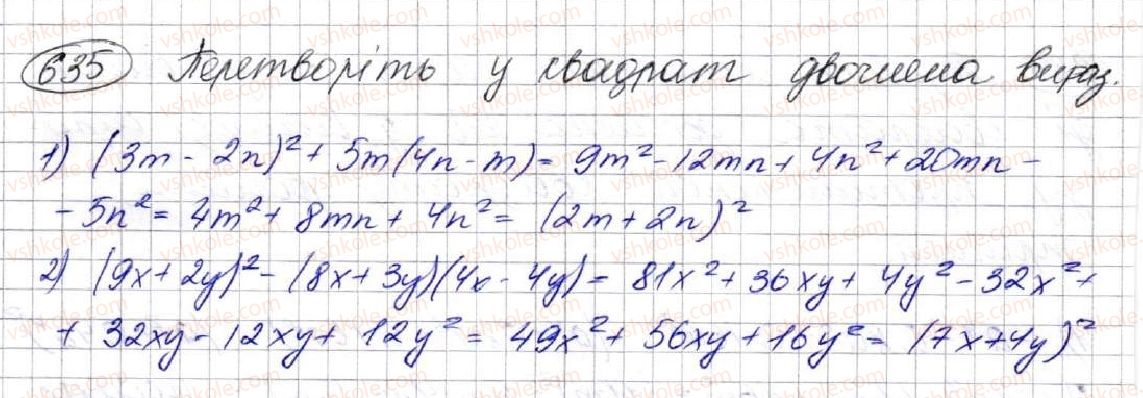 635 Перетворіть у квадрат двочлена вираз.
1) (3m - 2n)² + 5m(4n - m) = 9m² - 12mn + 4n² + 20mn -
- 5n² = 4m² + 8mn + 4n² = (2m + 2n)²
2) (9x + 2y)² - (8x + 3y)(4x - 4y) = 81x² + 36xy + 4y² - 32x² +
+ 32xy - 12xy + 12y² = 49x² + 56xy + 16y² = (7x + 4y)²